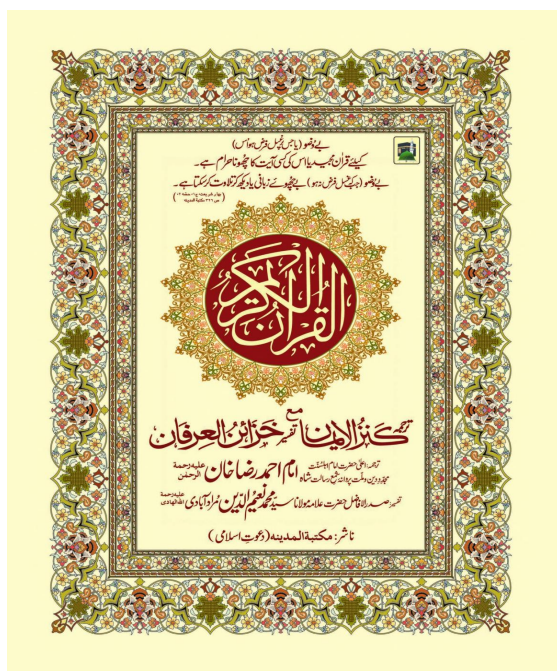 بے وضو (یا جس پر غسل فرض ہو اس)
کیلئے قرآن مجید یا اس کی کسی آیت کا چھونا حرام ہے۔
بے وضو (جبکہ غسل فرض نہ ہو) بے چھوئے زبانی یا دیکھ کر تلاوت کر سکتا ہے۔
القرآن الکریم
ترجمہ کنز الایمان مع تفسیر خزائن العرفان
ترجمہ: اعلیٰ حضرت امام اہلسنّت
مجدد دین و ملت پروانۂ شمع رسالت شاہ امام احمد رضا خان علیہ رحمۃ الرحمٰن
تفسیر: صدر الافاضل حضرت علامہ مولانا سید محمد نعیم الدین مراد آبادی علیہ رحمۃ اللہ الھادی
ناشر: مکتبۃ المدینہ (دعوتِ اسلامی)